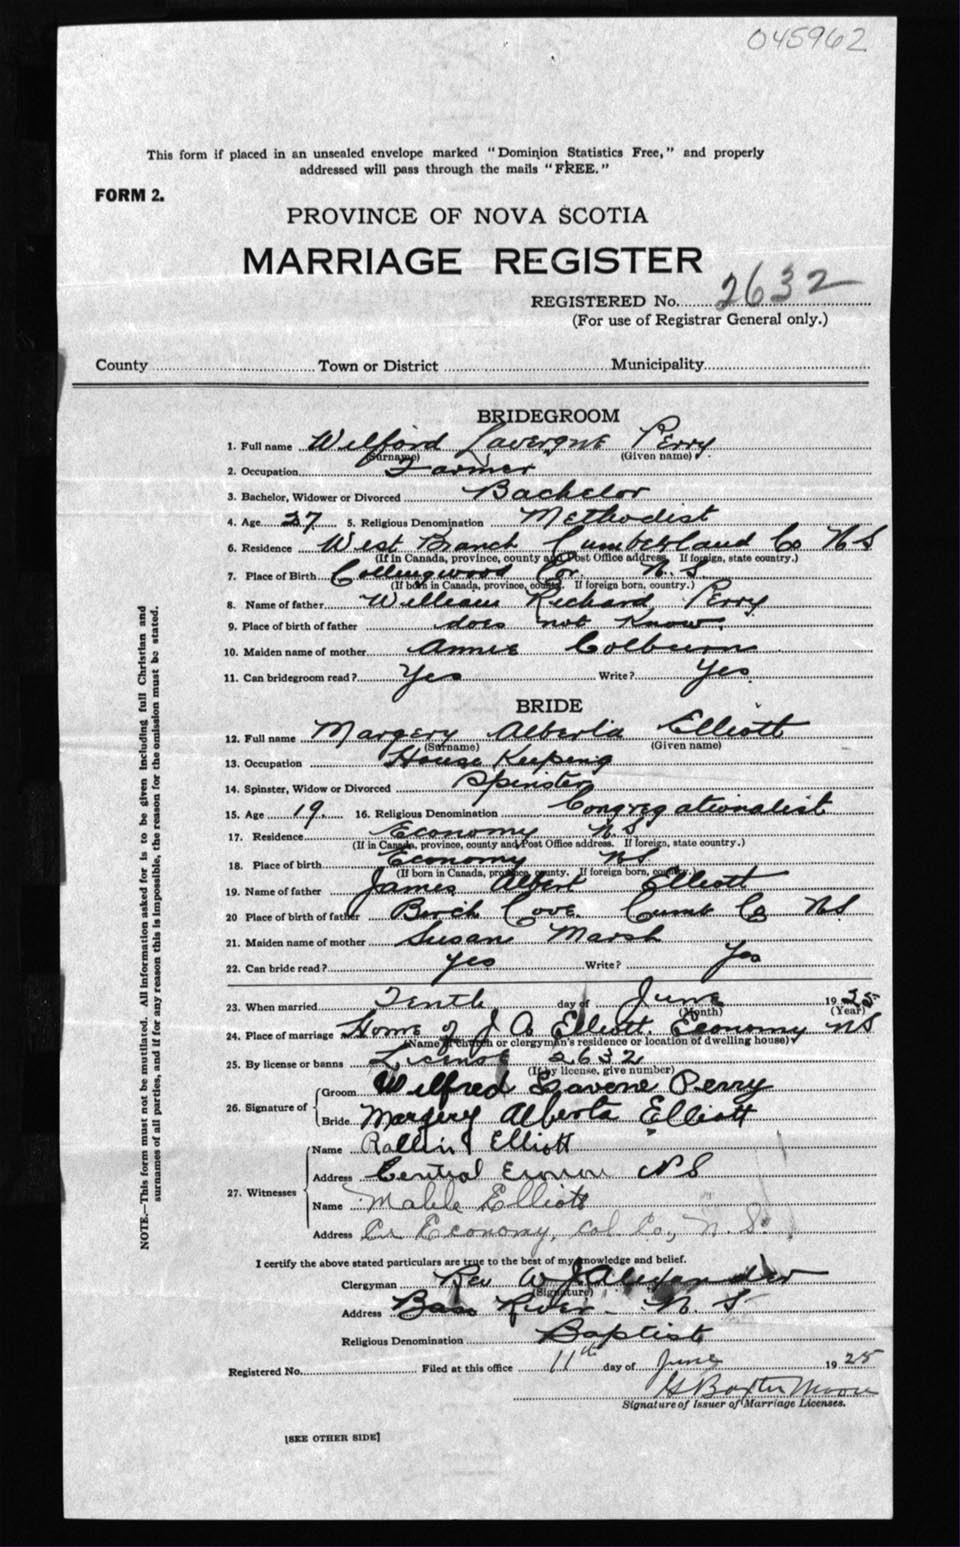 045962
This form if placed in an unsealed envelope marked "Dominion Statistics Free," and properly
addressed will pass through the mails "FREE."
FORM 2.
PROVINCE OF NOVA SCOTIA
MARRIAGE REGISTER
REGISTERED No. 2632
(For use of Registrar General only.)
County Town or District Municipality
BRIDEGROOM
1. Full name Wilford Lavergne Perry
(Surname) (Given name)
2. Occupation Farmer
3. Bachelor, Widower or Divorced Bachelor
4. Age 27 5. Religious Denomination Methodist
6. Residence West Branch Cumberland Co N S
(If in Canada, province, county and Post Office address. If foreign, state country.)
7. Place of Birth Collingwood Co. N. S.
(If born in Canada, province, county. If foreign born, country.)
8. Name of father William Richard Perry
9. Place of birth of father does not know.
10. Maiden name of mother Annie Colburn
11. Can bridegroom read? Yes Write? Yes
BRIDE
12. Full name Margery Alberta Elliott
(Surname) (Given name)
13. Occupation House Keeping
14. Spinster, Widow or Divorced Spinster
15. Age 19. 16. Religious Denomination Congregationalist
17. Residence Economy N.S
(If in Canada, province, county and Post Office address. If foreign, state country.)
18. Place of birth Economy NS
(If born in Canada, province, county. If foreign born, country.)
19. Name of father James Albert Elliott
20 Place of birth of father Birch Cove. Cumb Co NS
21. Maiden name of mother Susan Marsh
22. Can bride read? yes Write? Yes
23. When married Tenth day of June 1925
(Month) (Year)
24. Place of marriage Home of J A Elliott. Economy NS
(Name of church or clergyman's residence or location of dwelling house)
25. By license or banns License 2632
(If by license, give number)
26. Signature of Groom Wilfred Lavene Perry
Bride Margery Alberta Elliott
27. Witnesses Name Elliott
Address Central N S
Name Elliott
Address Economy, Col Co., N. S.
I certify the above stated particulars are true to the best of my knowledge and belief.
Clergyman Rev W J Alexander
(Signature)
Address Bass River. N. S
Religious Denomination Baptist
Registered No. Filed at this office 11th day of June 1925
G Baxter Moore
Signature of Issuer of Marriage Licenses.
[SEE OTHER SIDE]
NOTE.—This form must not be mutilated. All information asked for is to be given including full Christian and
surnames of all parties, and if for any reason this is impossible, the reason for the omission must be stated.